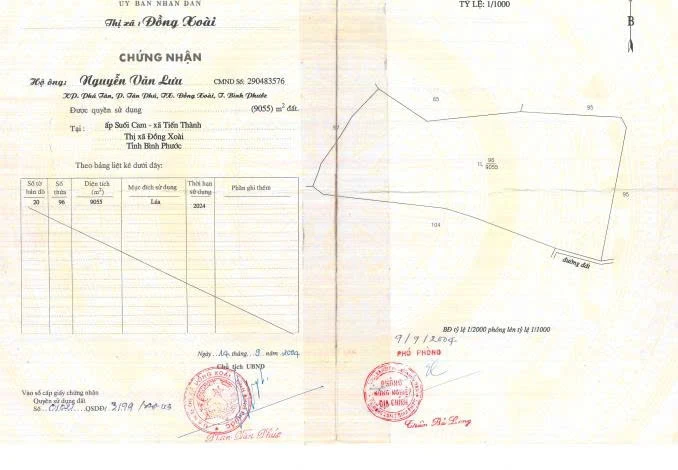 ỦY BAN NHÂN DÂN
Thị xã : Đồng Xoài
CHỨNG NHẬN
Hộ ông: Nguyễn Văn Lưu CMND Số: 290483576
KP. Phú Tân, P. Tân Phú, TX. Đồng Xoài, T. Bình Phước
Được quyền sử dụng (9055) m² đất
Tại : ấp Suối Cam - xã Tiến Thành
Thị xã Đồng Xoài
Tỉnh Bình Phước
Theo bảng liệt kê dưới đây:
Số tờ bản đồ Số thửa Diện tích (m²) Mục đích sử dụng Thời hạn sử dụng Phần ghi thêm
20 96 9055 Lúa 2024
Ngày 14 tháng 9 năm 2004
Chủ tịch UBND
Vào sổ cấp giấy chứng nhận
Quyền sử dụng đất
Số QSDĐ/ 3194
Phan Văn Phúc
TỶ LỆ: 1/1000
B
65
95
97
L 96
9055
95
104
đường đất
BĐ tỷ lệ 1/2000 phóng lên tỷ lệ 1/1000
9/9/2004
PHÓ PHÒNG
PHÒNG
NÔNG NGHIỆP
ĐỊA CHÍNH
Trần Bá Long